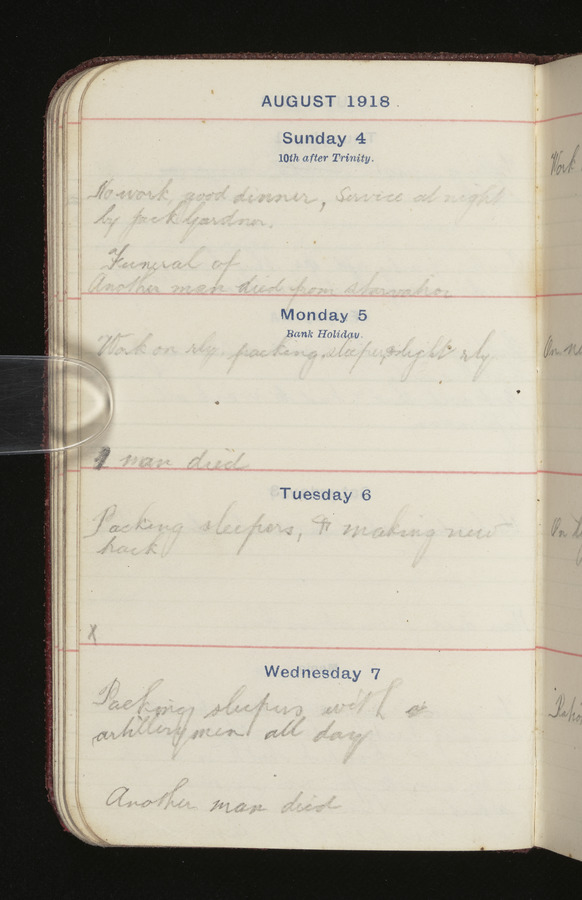 AUGUST 1918.
Sunday 4
10th after Trinity.
No work, good dinner, Service at night
by Jack Gardner.
Funeral of
Another man died from starvation
Monday 5
Bank Holiday.
Work on rly. packing sleepers, light rly.
man died
Tuesday 6
Packing sleepers, & making new
track
X
Wednesday 7
Packing sleepers with
artillerymen all day
Another man died
Work
On
On